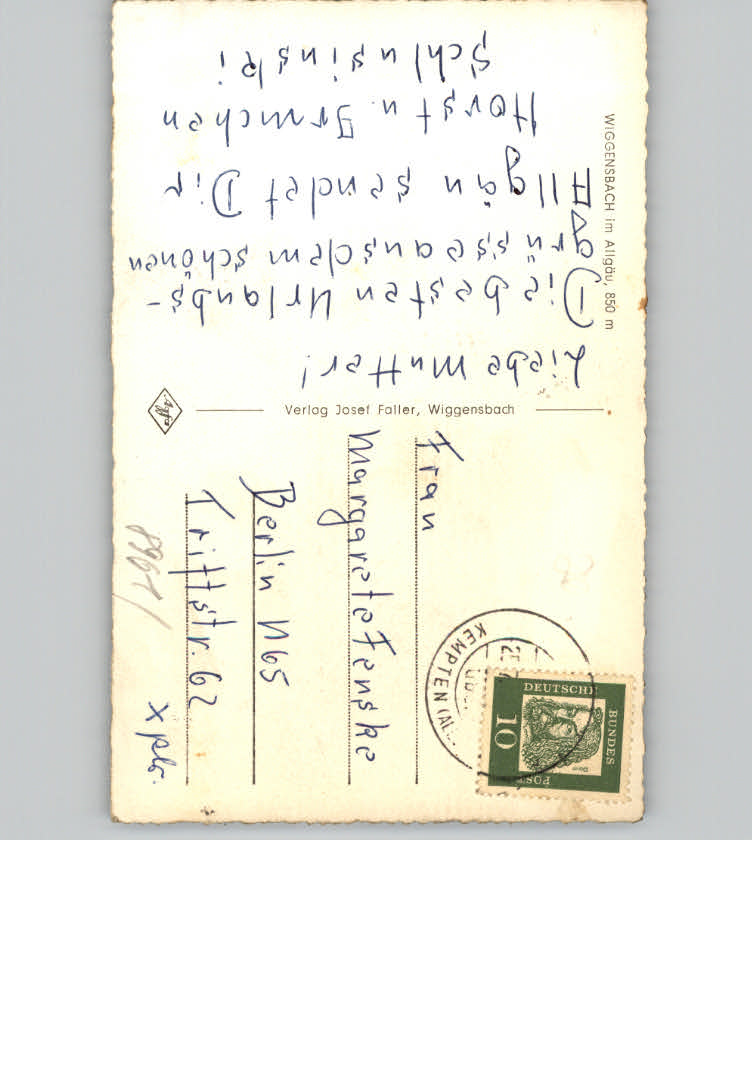 Liebe Mutter!
Die besten Urlaubs-
grüsse aus dem schönen
Allgäu sendet Dir
Horst u. Irmchen
Schlusinski
WIGGENSBACH im Allgäu, 850 m
Verlag Josef Faller, Wiggensbach
Agfa
Frau
Margarete Fenske
Berlin N65
Triftstr. 62
8961
KEMPTEN (AL
DEUTSCHE
BUNDES
POST
10